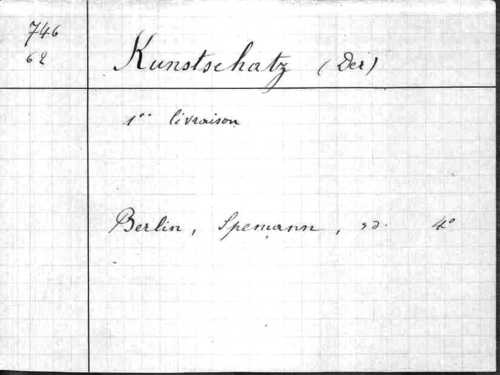 746
62
Kunstschatz (Der)
1ère livraison
Berlin, Spemann, sd. 4°